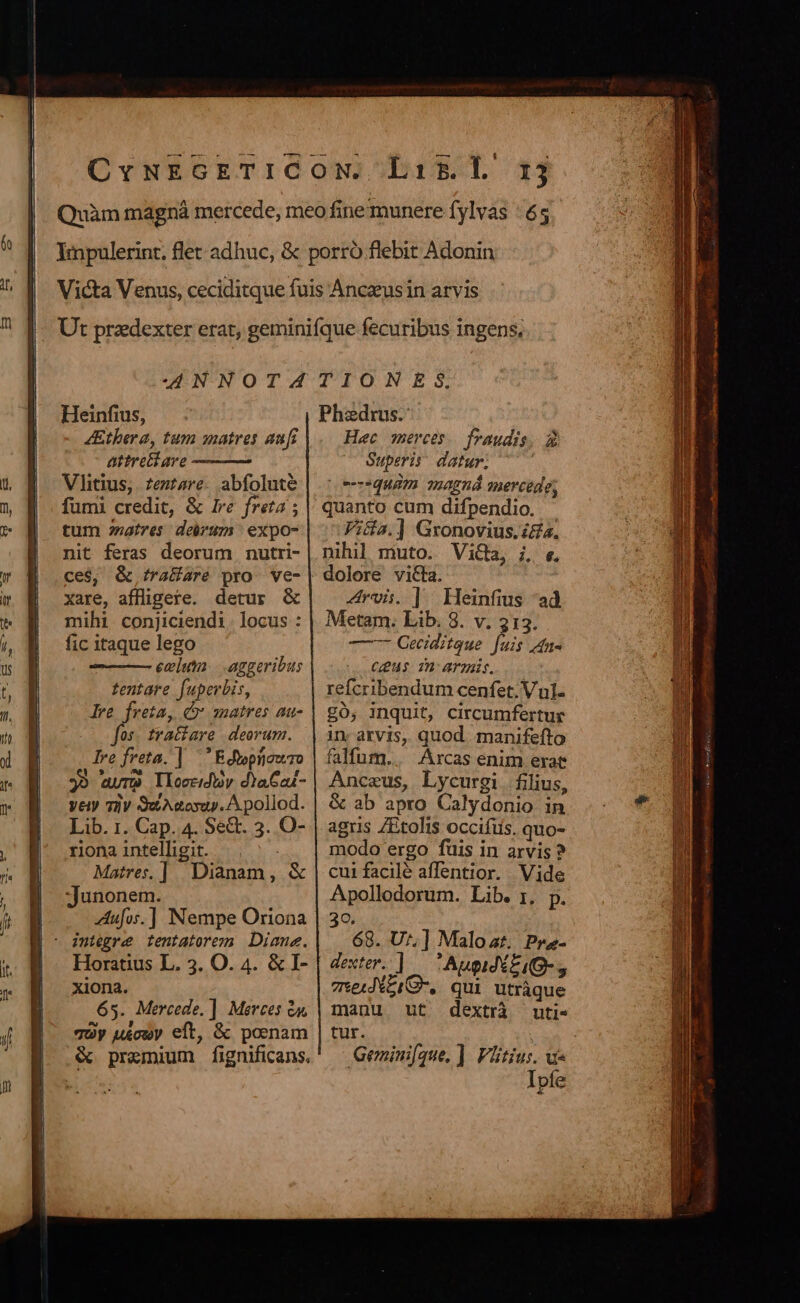 CYNEGETICON. LIB. I. 13
Quàm magnâ mercede, meo sine munere sylvas 65
Impulerint. flet adhuc, & porrò flebit Adonin
Victa Venus, ceciditque suis Ancæus in arvis
Ut prædexter erat, geminisque securibus ingens.
ANNOTATIONES.
Heinsius,
Æthera, tum matres ausi
attrectare ———
Vlitius, tentare absolutè
sumi credit, & Ire freta ;
tum matres deûrum expo-
nit feras deorum nutri-
ces, & tractare pro ve-
xare, affligere. detur &
mihi conjiciendi locus :
sic itaque lego
——— cælum aggeribus
tentare superbis,
Ire freta, & matres au-
sos tractare deorum.
Ire freta. ] Ἐδωρήσατο
γὸ αὐτῷ Ποσειδῶν διαβαί-
νειν τὴν θάλασσαν. Apollod.
Lib. 1. Cap. 4. Sect. 3. O-
riona intelligit.
Matres. ] Dianam, &
Junonem.
Ausos. ] Nempe Oriona
integræ tentatorem Dianæ.
Horatius L. 3. O. 4. & I-
xiona.
65. Mercede. ] Merces ἐκ
τῶν μέσων est, & pœnam
& præmium significans.
Phædrus.
Hæc merces fraudis à
Superis datur.
----quàm magnâ mercede,
quanto cum dispendio.
Victa. ] Gronovius, icta.
nihil muto. Victa, i. e.
dolore victa.
Arvis. ] Heinsius ad
Metam. Lib. 8. v. 313.
—— Ceciditque suis An-
cæus in armis.
rescribendum censet. Vul-
gò, inquit, circumfertur
in arvis, quod manifesto
falsum. Arcas enim erat
Ancæus, Lycurgi filius,
& ab apro Calydonio in
agris Ætolis occisus. quo-
modo ergo suis in arvis ?
cui facilè assentior. Vide
Apollodorum. Lib. 1. p.
30.
68. Ut. ] Malo at. Præ-
dexter. ] Ἀμφιδέξιος,
περιδέξιος, qui utrâque
manu ut dextrâ uti-
tur.
Geminisque. ] Vlitius. u-
Ipse